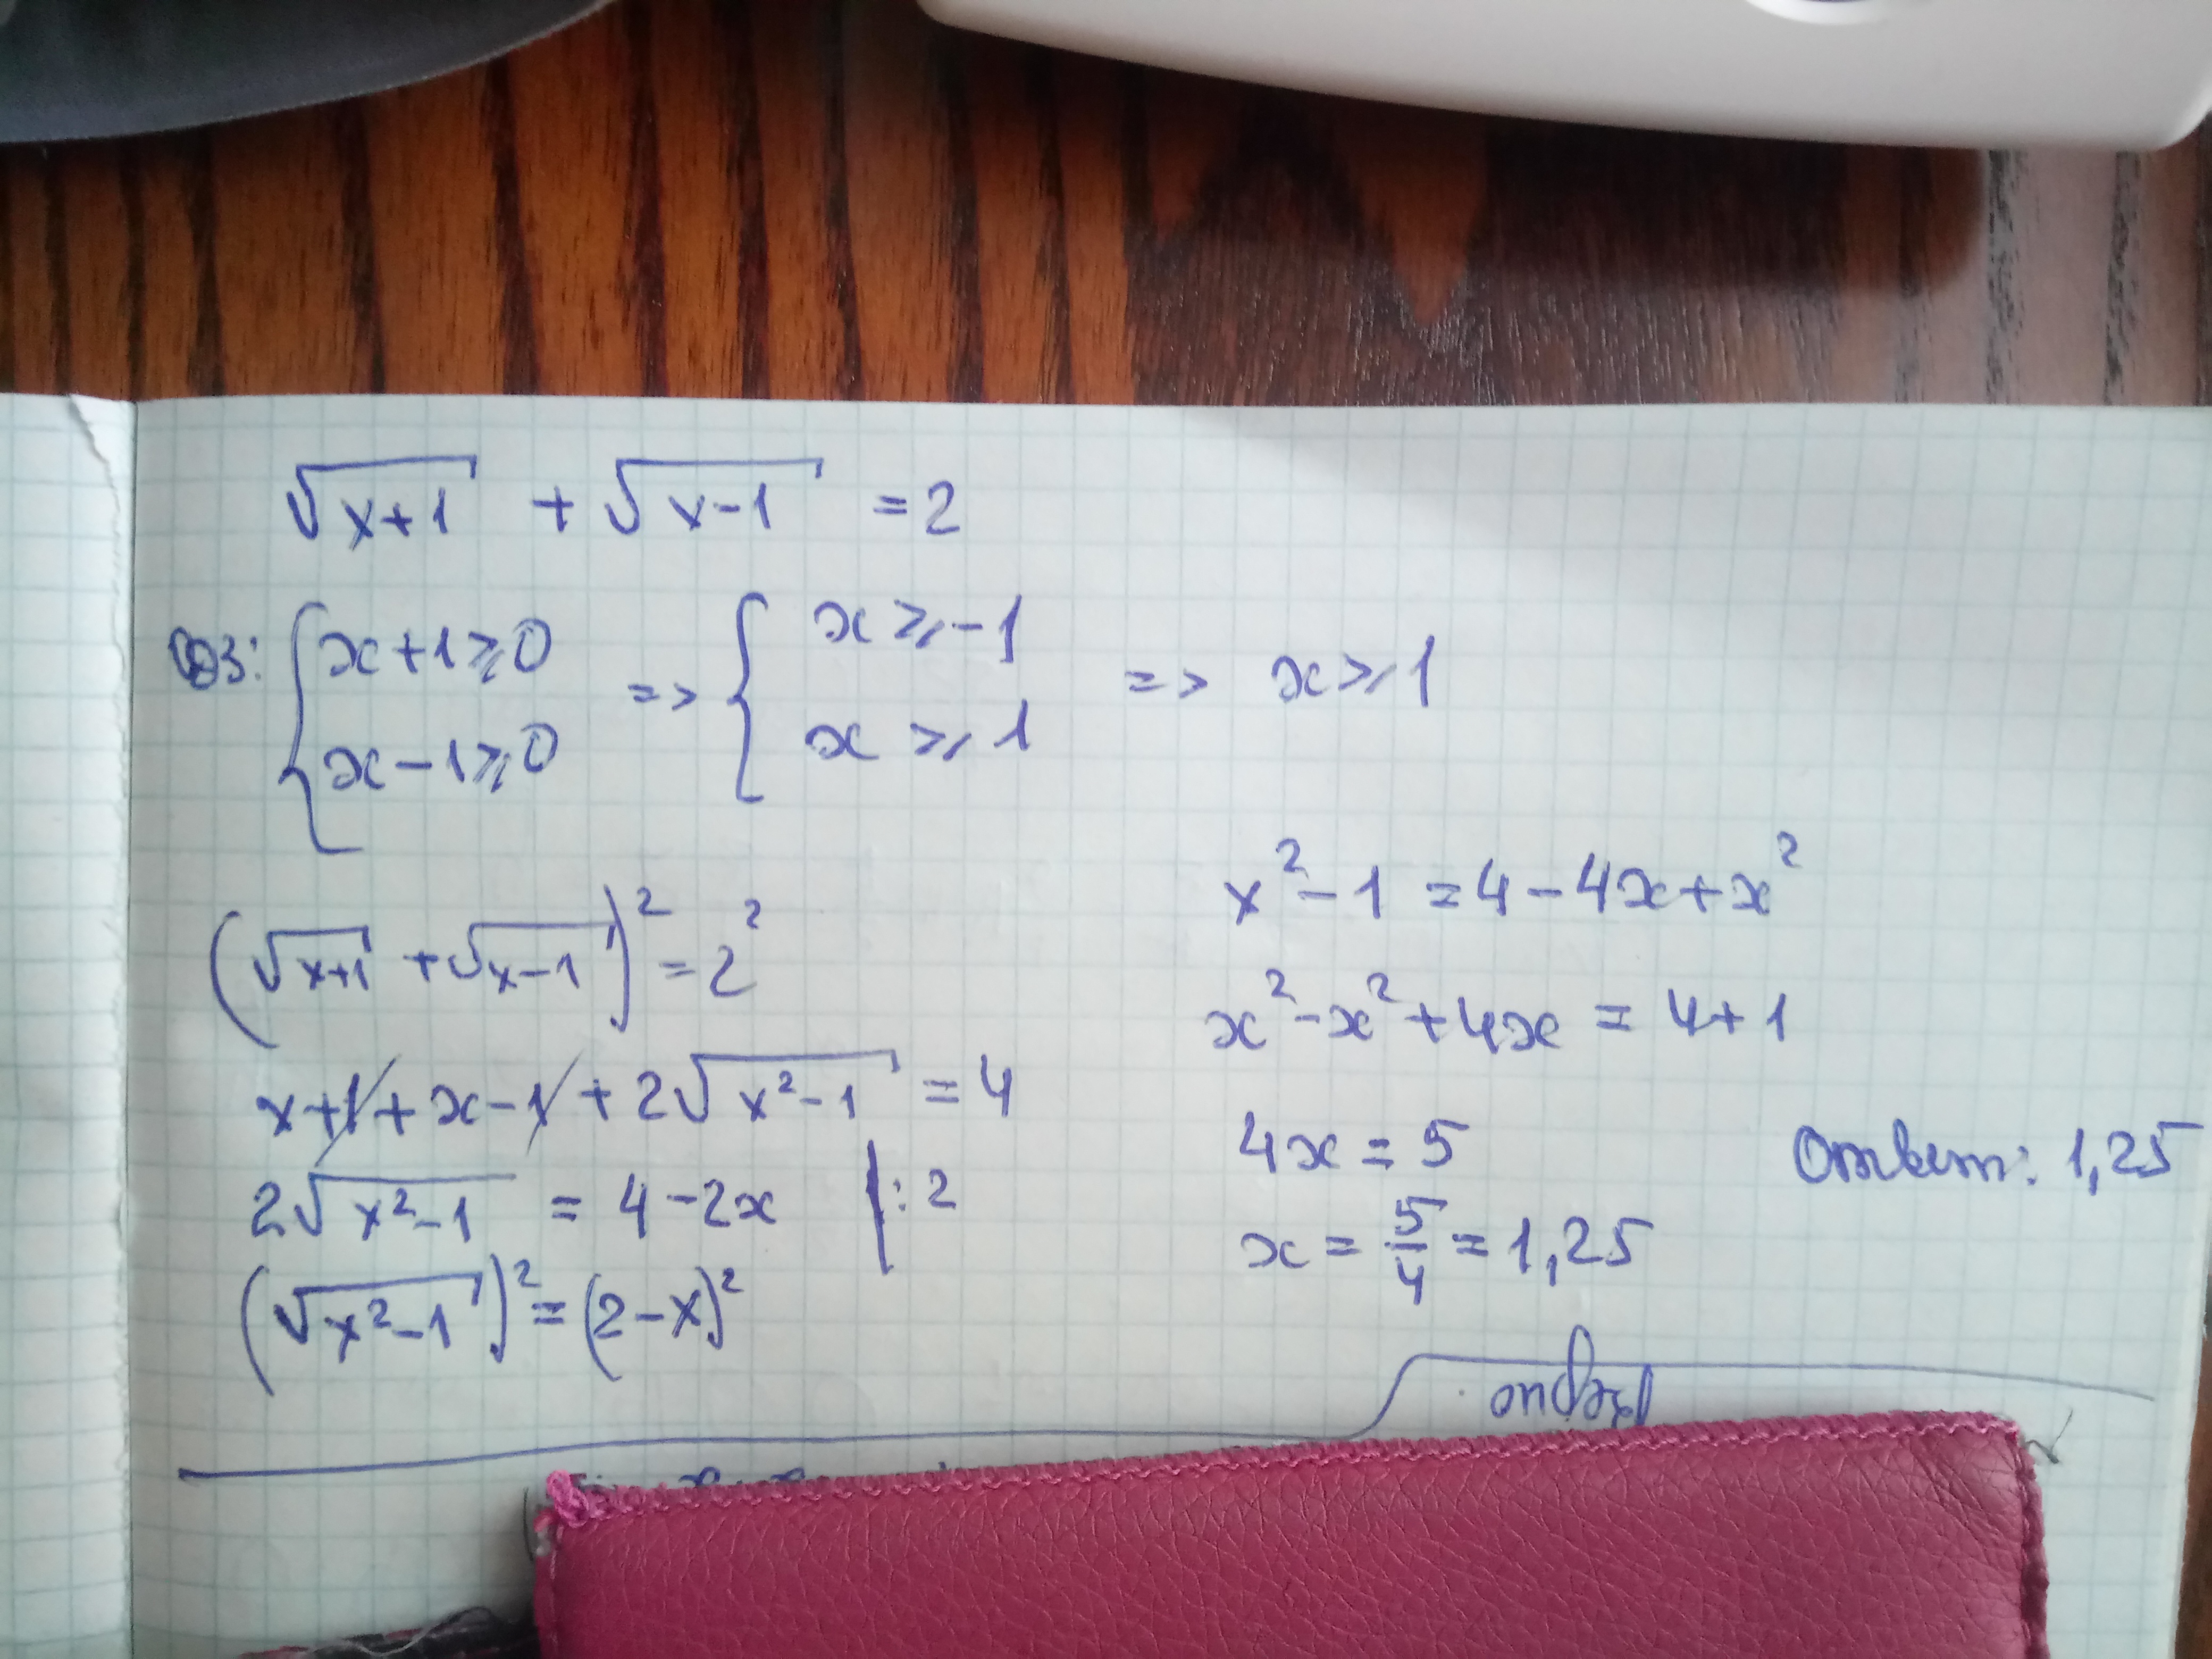 √(x+1) + √(x-1) = 2
ОДЗ: { x+1⩾0 => { x⩾-1 => x⩾1
x-1⩾0 x⩾1
(√(x+1) + √(x-1))² = 2²
x+1+x-1+2√(x²-1) = 4
2√(x²-1) = 4-2x |:2
(√(x²-1))² = (2-x)²
x²-1 = 4-4x+x²
x²-x²+4x = 4+1
4x = 5
x = 5/4 = 1,25
Ответ: 1,25